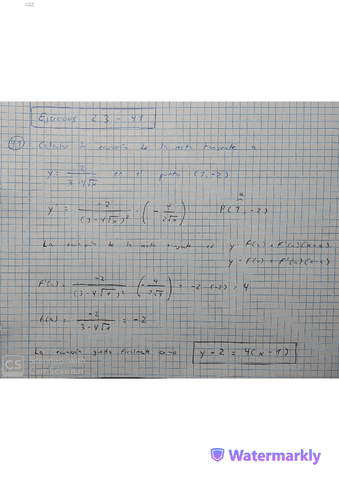 Ejercicios 2.3 - 41
41 Calcular la ecuación de la recta tangente a
y = 2 / (3 - 4√x) en el punto (1, -2)
y' = -2 / (3 - 4√x)² · (- 4 / 2√x) P(1, -2)
La ecuación de la recta tangente es y - F(a) = F'(a)(x-a)
y - F(a) = F'(a)(x-a)
F'(a) = -2 / (3 - 4√1)² (- 4 / 2√1) = -2 · (-2) = 4
f(a) = -2 / (3 - 4√1) = -2
La ecuación queda finalmente como y + 2 = 4(x - 1)
CS
CamScanner
Watermarkly